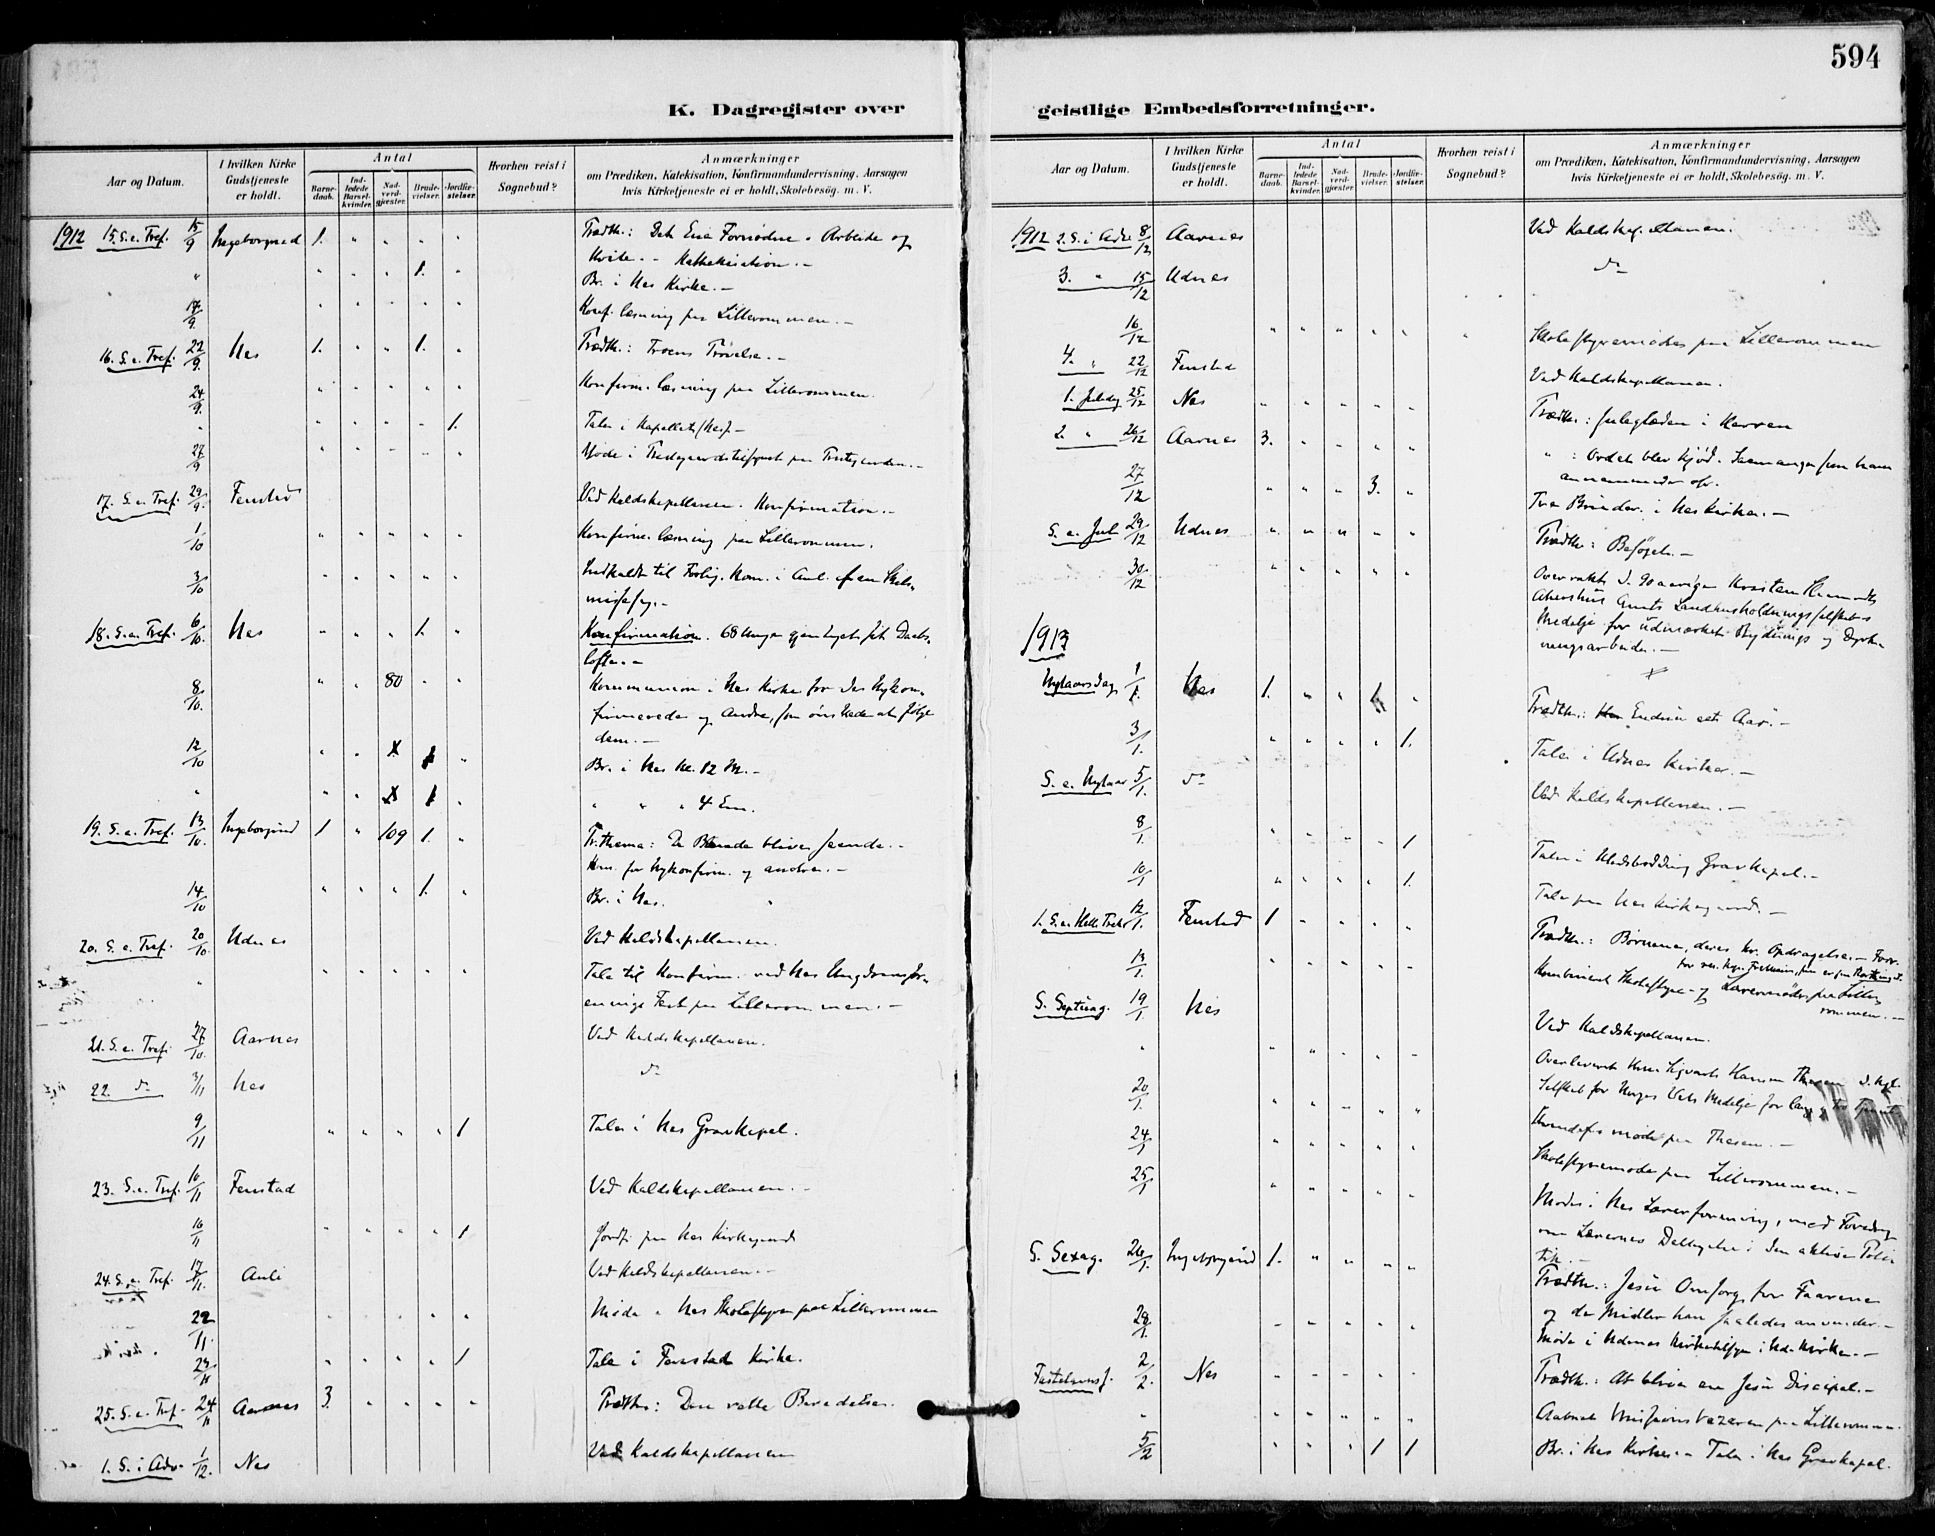 594
K. Dagregister over
geistlige Embedsforretninger.
Aar og Datum.
I hvilken Kirke Gudstjeneste er holdt.
Antal
Barnedaab.
Indledede Barselkvinder.
Nadverdgjæster.
Brudevielser.
Jordfæstelser.
Hvorhen reist i Sognebud?
Anmærkninger
om Prædiken, Katekisation, Konfirmandundervisning, Aarsagen
hvis Kirketjeneste ei er holdt, Skolebesøg. m. V.
1912 15. S. e. Tref. 15/9 Ingeborgrud 1. " " " " Prædth.: Det Ene Fornødne. Arbeide og
Hvile. - Kathekisation. -
" " " " 1. " Br. i Nes Kirke. -
17/9. " " " " " Konf. læsning paa Lillerommen. -
16. S. e. Tref. 22/9. Nes 1. " " 1. " Prædth.: Troens Prøvelse. -
24/9. " " " " " Konfirm. læsning paa Lillerommen.
" " " " " 1. Tale i Kapellet (Nes). -
27/9 " " " " " Møde i
17. S. e. Tref. 29/9. Fenstad Ved Kaldskapellanen. Konfirmation. -
1/10 " " " " " Konfirm. læsning paa Lillerommen.
3/10 " " " " " Indkaldt til Forlig. kom. i Anl. af en Skils-
missesag. -
18. S. e. Tref. 6/10. Nes " " " 1. " Konfirmation. 68 Unge gjentoget sit Daabs-
løfte. -
8/10. " " 80 " " Kommunion i Nes Kirke for de Nykon-
firmerede og Andre, som ønskede at følge
dem. -
12/10 " " 1 " Br. i Nes kl. 12 M. -
" " " 1 " " " " 4 Em.
19. S. e. Tref. 13/10. Ingeborgrud 1 " 109 1. " Pr. thema: De Blinde bliver seende. -
Kom. for Nykonfirm. og andre. -
14/10 " " " 1. " Br. i Nes.
20. S. e. Tref. 20/10 Udnes Ved Kaldskapellanen.
" " " " " " Tale til Konfirm. ved Nes Ungdomsfor-
enings Fest paa Lillerommen. -
21. S. e. Tref. 27/10. Aarnes Ved Kaldskapellanen.
22. do 3/11 Nes do
9/11 " " " " 1 Tale i Nes Gravkapel.
23. S. e. Tref. 10/11 Fenstad Ved Kaldskapellanen. -
16/11 " " " " 1 Jordf. paa Nes Kirkegaard
24. S. e. Tref. 17/11. Auli Ved Kaldskapellanen. -
22/11. " " " " " Møde i Nes Skolestyre paa Lillerommen
23/11 " " " " 1 Tale i Fenstad Kirke.
25. S. e. Tref. 24/11 Aarnes 3. " " " " Prædth.: Den rette Beredelse.
1. S. i Adv. 1/12. Nes Ved Kaldskapellanen
Aar og Datum.
I hvilken Kirke Gudstjeneste er holdt.
Antal
Barnedaab.
Indledede Barselkvinder.
Nadverdgjæster.
Brudevielser.
Jordfæstelser.
Hvorhen reist i Sognebud?
Anmærkninger
om Prædiken, Katekisation, Konfirmandundervisning, Aarsagen
hvis Kirketjeneste ei er holdt, Skolebesøg. m. V.
1912 2. S. i Adv. 8/12 Aarnes Ved Kaldskapellanen.
3. " 15/12 Udnes do
16/12 " " " " " Skolestyremøde paa Lillerommen
4. " 22/12 Fenstad Ved Kaldskapellanen.
1. Juledag 25/12 Nes " " " " " Prædth.: Juleglæden i Herren
2. " 26/12 Aarnes 3. " " " " " : Ordet blev Kjød. Saamange som ham
annammede osv.
27/12 " " " 3. " Tre Brudev. i Nes Kirke. -
S. e. Jul 29/12 Udnes " " " " " Prædth.: Besøget. -
30/12 " " " " " Overrakte d. 90 aarige
Akershus Amts Landhusholdnings selskabs
Medalje for udmærket Rydnings og Dyrk-
ningsarbeide. -
1913
Nytaarsdag 1/1. Nes 1. " " 1 " Prædth.: Endnu eet Aar. -
3/1. " " " " 1. Tale i Udnes Kirke. -
S. e. Nytaar 5/1. do Ved Kaldskapellanen. -
8/1. " " " " 1 Tale i Gravkapel. -
10/1 " " " " 1. Tale paa Nes Kirkegaard. -
1. S. e. Hell. Trek. 12/1. Fenstad 1 " " " " Prædth.: Børnene, deres kr. Opdragelse. -
13/1. " " " " " Kombineret Skolestyre- og Lærermøde paa Lille-
rommen. -
S. Septuag. 19/1. Nes Ved Kaldskapellanen.
" " " " " " Overleveret Hans Sigvart Hansen Thesen d. Kgl.
Selskab for Norges Vels Medalje for lang og tro Tjeneste
20/1. " " " " " møde paa Thesen. -
24/1 " " " " " Skolestyremøde paa Lillerommen. -
25/1 " " " " " Møde i Nes Lærerforening, med Foredrag
om Lærernes Deltagelse i den aktive Poli-
tik. -
S. Sexag. 26/1. Ingeborgrud 1. " " " " Prædth.: Jesu Omsorg for Faarene
og de Midler han saaledes anvender. -
29/1. " " " " " Møde i Udenes Kirketilsyn i Ud. Kirke. -
Fastelavns s. 2/2. Nes " " " " " Prædth.: At blive en Jesu Discipel. -
" " " " " " Aabnet Missionsbazaren paa Lillerommen.
5/2 " " " 1 1 Br. i Nes Kirke. - Tale i Nes Gravkapel.